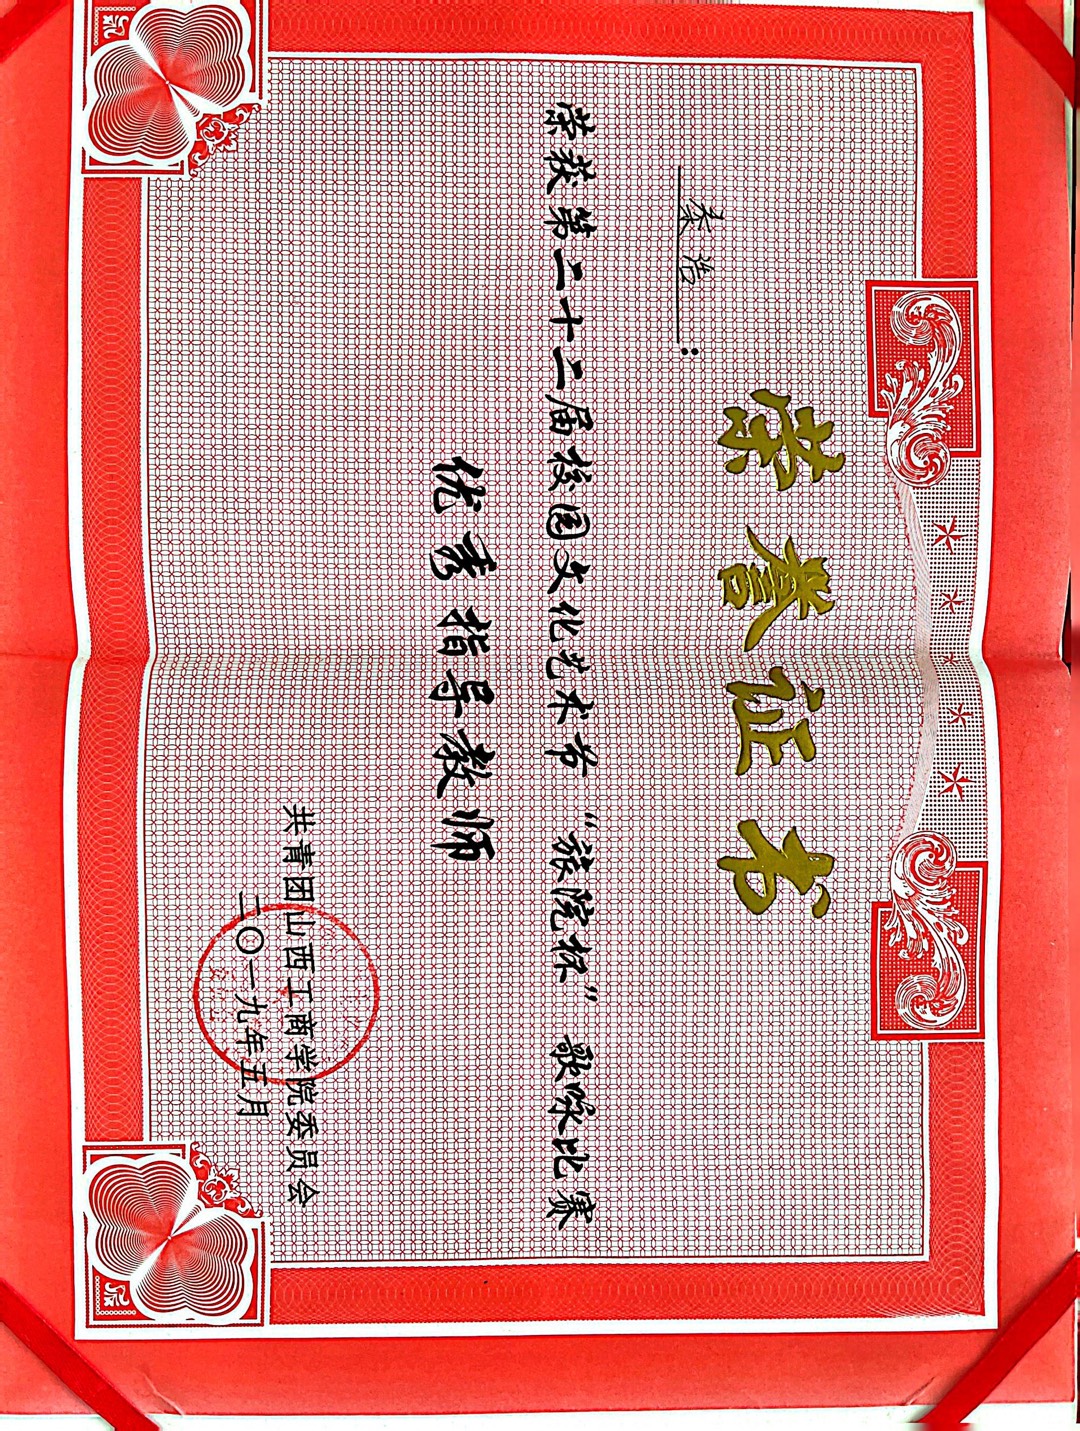 荣誉证书
秦浩：
荣获第二十二届校园文化艺术节“旅院杯” 歌咏比赛
优秀指导教师
共青团山西工商学院委员会
二〇一九年五月